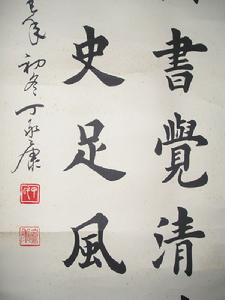 書覺清
史足風
初冬丁永康